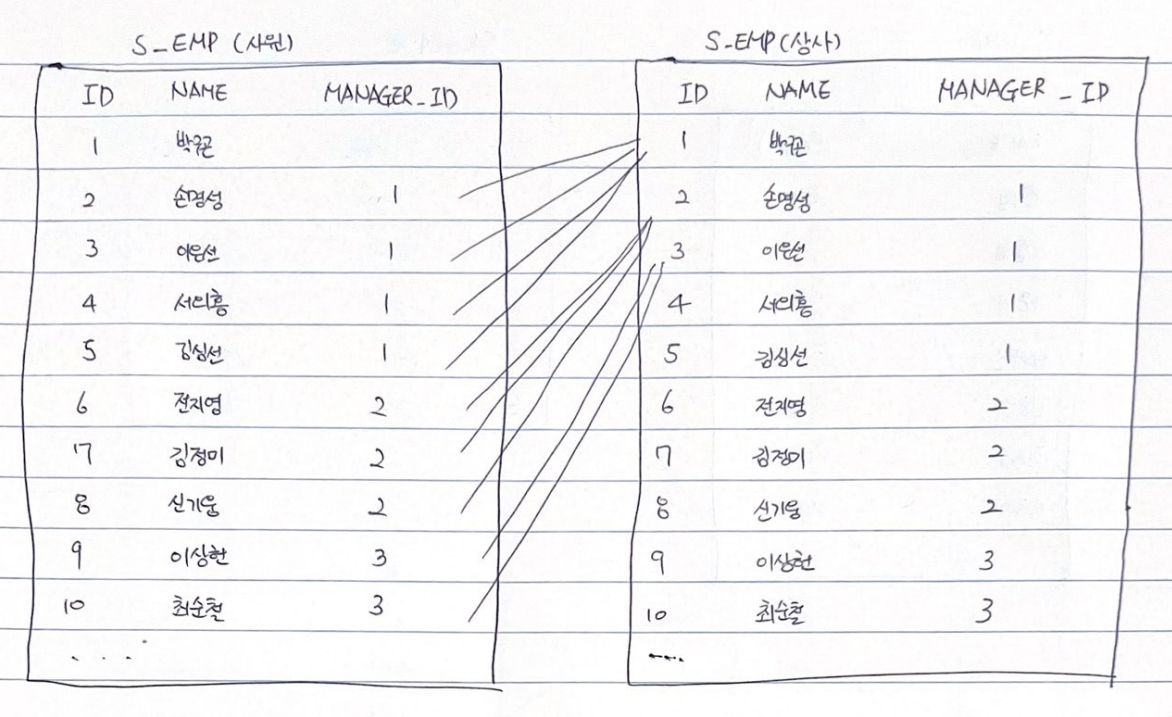 S_EMP (사원) S_EMP (상사)
ID NAME MANAGER_ID ID NAME MANAGER_ID
1 박구곤 1 박구곤
2 손명성 1 2 손명성 1
3 이은선 1 3 이은선 1
4 서의홍 1 4 서의홍 1
5 김심선 1 5 김심선 1
6 전지영 2 6 전지영 2
7 김정미 2 7 김정미 2
8 신기웅 2 8 신기웅 2
9 이상헌 3 9 이상헌 3
10 최순철 3 10 최순철 3
.... ....